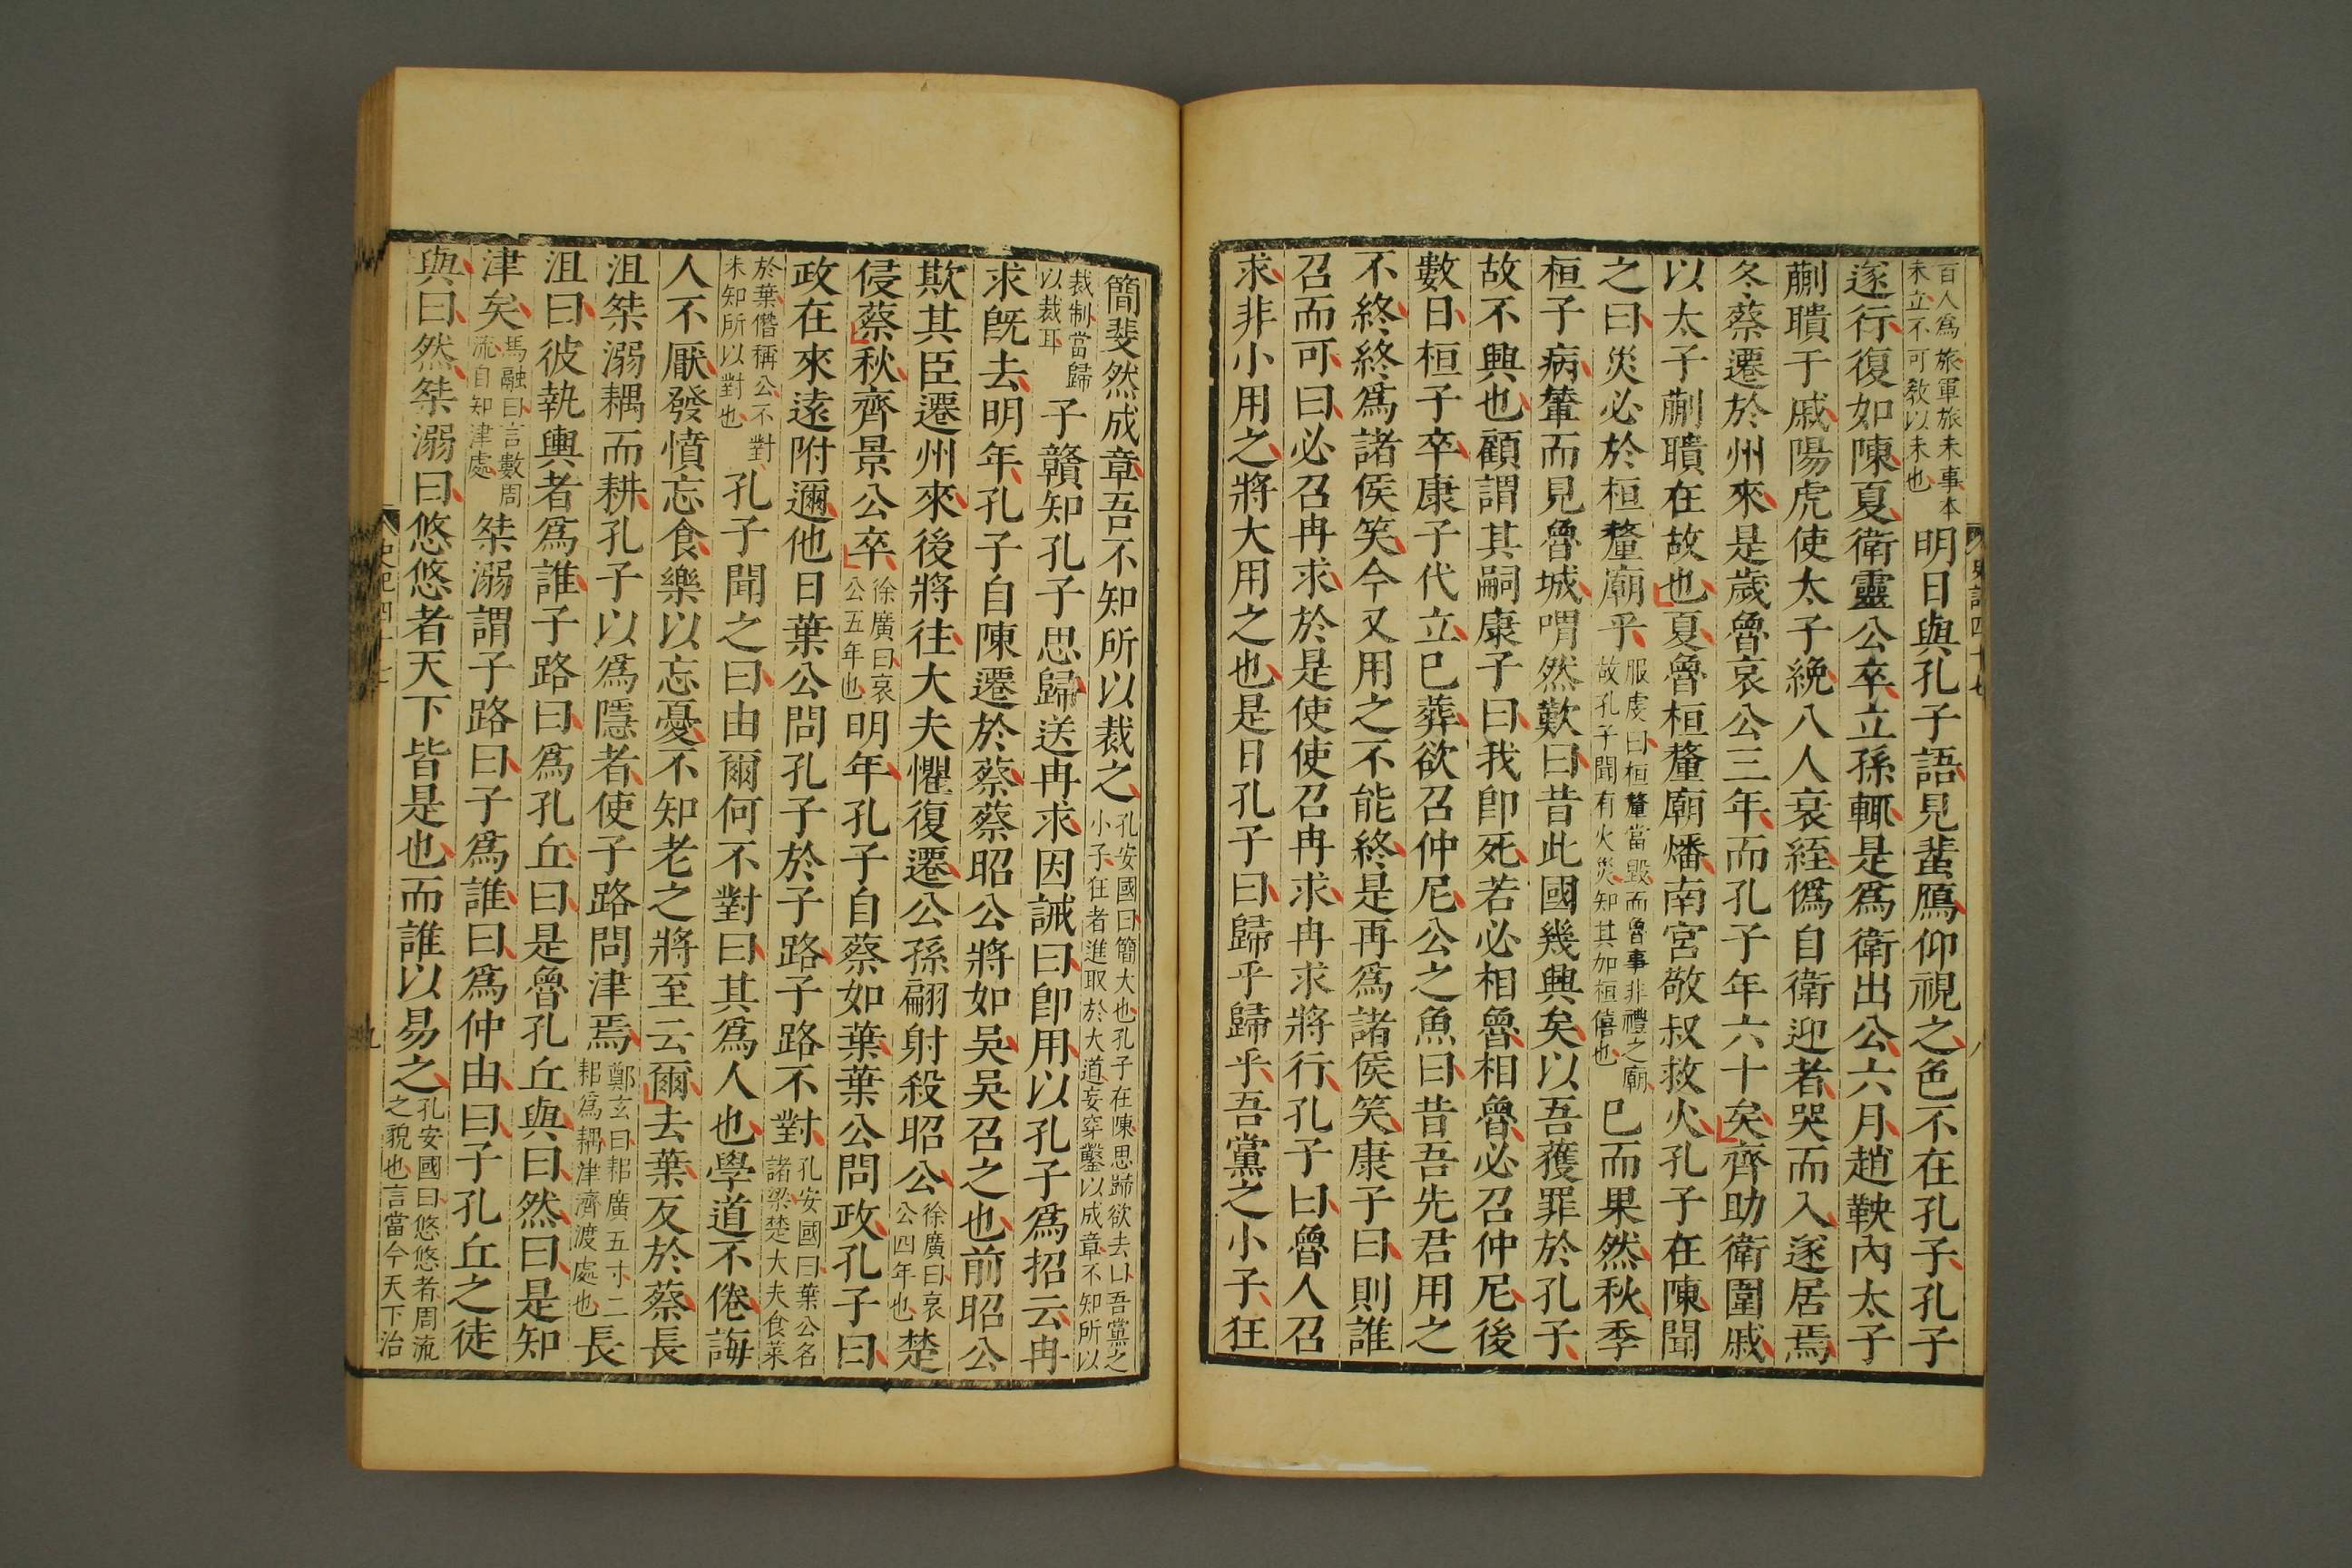 百人爲旅軍旅末事本
未立不可教以末也
明日與孔子語見蜚鴈仰視之色不在孔子孔子
遂行復如陳夏衛靈公卒立孫輒是爲衛出公六月趙鞅內太子
蒯聵于戚陽虎使太子絻八人衰絰僞自衛迎者哭而入遂居焉
冬蔡遷於州來是歲魯哀公三年而孔子年六十矣齊助衛圍戚
以太子蒯聵在故也夏魯桓釐廟燔南宮敬叔救火孔子在陳聞
之曰災必於桓釐廟乎
服虔曰桓釐當毀而魯事非禮之廟
故孔子聞有火災知其加桓僖也
已而果然秋季
桓子病輦而見魯城喟然歎曰昔此國幾興矣以吾獲罪於孔子
故不興也顧謂其嗣康子曰我卽死若必相魯相魯必召仲尼後
數日桓子卒康子代立已葬欲召仲尼公之魚曰昔吾先君用之
不終終爲諸侯笑今又用之不能終是再爲諸侯笑康子曰則誰
召而可曰必召冉求於是使使召冉求冉求將行孔子曰魯人召
求非小用之將大用之也是日孔子曰歸乎歸乎吾黨之小子狂
簡斐然成章吾不知所以裁之
孔安國曰簡大也孔子在陳思歸欲去曰吾黨之
小子狂者進取於大道妄穿鑿以成章不知所以
裁制當歸
以裁耳
子贛知孔子思歸送冉求因誡曰卽用以孔子爲招云冉
求旣去明年孔子自陳遷於蔡蔡昭公將如吳吳召之也前昭公
欺其臣遷州來後將往大夫懼復遷公孫翩射殺昭公
徐廣曰哀
公四年也
楚
侵蔡秋齊景公卒
徐廣曰哀
公五年也
明年孔子自蔡如葉葉公問政孔子曰
政在來遠附邇他日葉公問孔子於子路子路不對
孔安國曰葉公名
諸梁楚大夫食菜
於葉僭稱公不對
未知所以對也
孔子聞之曰由爾何不對曰其爲人也學道不倦誨
人不厭發憤忘食樂以忘憂不知老之將至云爾去葉反於蔡長
沮桀溺耦而耕孔子以爲隱者使子路問津焉
鄭玄曰耜廣五寸二
耜爲耦津濟渡處也
長
沮曰彼執輿者爲誰子路曰爲孔丘曰是魯孔丘與曰然曰是知
津矣
馬融曰言數周
流自知津處
桀溺謂子路曰子爲誰曰爲仲由曰子孔丘之徒
與曰然桀溺曰悠悠者天下皆是也而誰以易之
孔安國曰悠悠者周流
之貌也言當今天下治
史記四十七
八
九